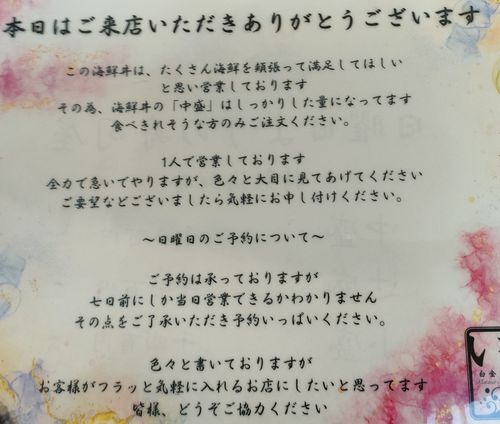 本日はご来店いただきありがとうございます
この海鮮丼は、たくさん海鮮を頬張って満足してほしい
と思い営業しております
その為、海鮮丼の「中盛」はしっかりした量になってます
食べきれそうな方のみご注文ください。
1人で営業しております
全力で急いでやりますが、色々と大目に見てあげてください
ご要望などございましたら気軽にお申し付けください。
～日曜日のご予約について～
ご予約は承っておりますが
七日前にしか当日営業できるかわかりません
その点をご了承いただき予約いっぱいください。
色々と書いておりますが
お客様がフラッと気軽に入れるお店にしたいと思ってます
皆様、どうぞご協力ください
白金